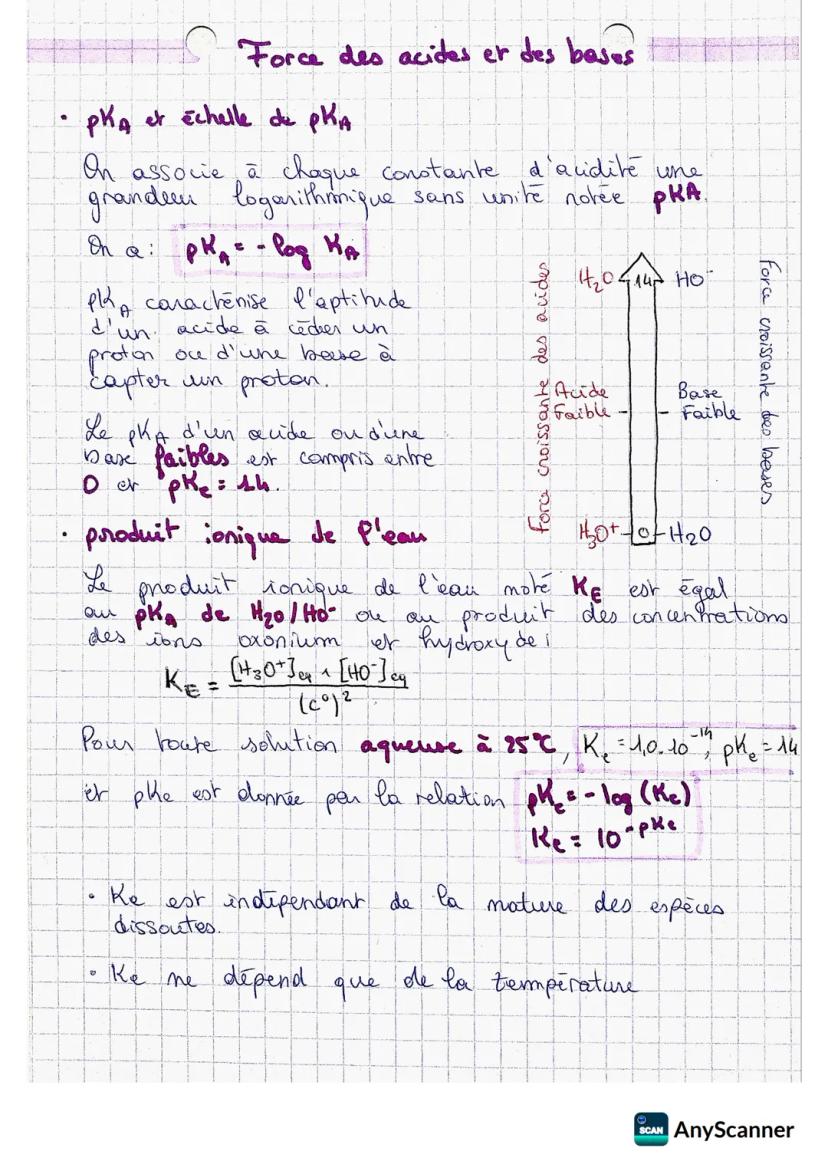 Force des acides et des bases
• pKA et échelle de pKA
On associe à chaque constante d'acidité une
grandeur logarithmique sans unité notée pKA.
On a : pKA = - log KA
pKA caractérise l'aptitude
d'un acide à céder un
proton ou d'une base à
capter un proton.
Le pKA d'un acide ou d'une
base faibles est compris entre
0 et pKe = 14.
Force croissante des acides
H2O 14 HO-
Acide Faible
Base Faible
H3O+ 0 H2O
Force croissante des bases
• produit ionique de l'eau
Le produit ionique de l'eau noté KE est égal
au pKA de H2O/HO- ou au produit des concentrations
des ions oxonium et hydroxyde :
KE = [H3O+]eq × [HO-]eq / (c°)²
Pour toute solution aqueuse à 25°C, Ke = 1,0.10-14, pKe = 14
et pKe est donnée par la relation pKe = - log (Ke)
Ke = 10-pKe
• Ke est indépendant de la nature des espèces
dissoutes.
• Ke ne dépend que de la température
SCAN AnyScanner